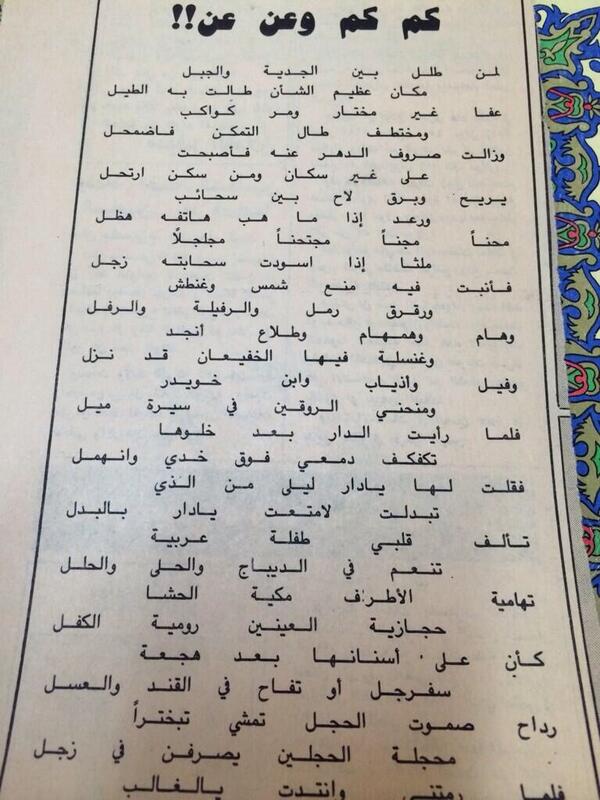 كم كم وعن عن!!
لمن طلل بين الجدية والجبل
مكان عظيم الشأن طالت به الطيل
عفا غير مختار ومر كَواكب
ومختطف طال التمكن فاضمحل
وزالت صروف الدهر عنه فأصبحت
على غير سكان ومن سكن ارتحل
بريح وبرق لاح بين سحائب
ورعد إذا ما هب هاتفه هطل
محناً مجناً مجتحناً مجلجلاً
ملثا إذا اسودت سحابته زجل
فأنبت فيه منع شمس وغنطش
ورقرق رمل والرفيلة والرفل
وهام وهمهام وطلاع أنجد
وغنسلة فيها الخفيعان قد نزل
وفيل وأذياب وابن خويدر
ومنحني الروقين في سيرة ميل
فلما رأيت الدار بعد خلوها
تكفكف دمعي فوق خدي وانهمل
فقلت لها يادار ليلى من الذي
تبدلت لامتعت يادار بالبدل
تألف قلبي طفلة عربية
تنعم في الديباج والحلى والحلل
تهامية الأطراف مكية الحشا
حجازية العينين رومية الكفل
كأن على أسنانها بعد هجعة
سفرجل أو تفاح في القند والعسل
رداح صموت الحجل تمشي تبختراً
محجلة الحجلين يصرفن في زجل
فلما رمتني وانتدت بالغالب